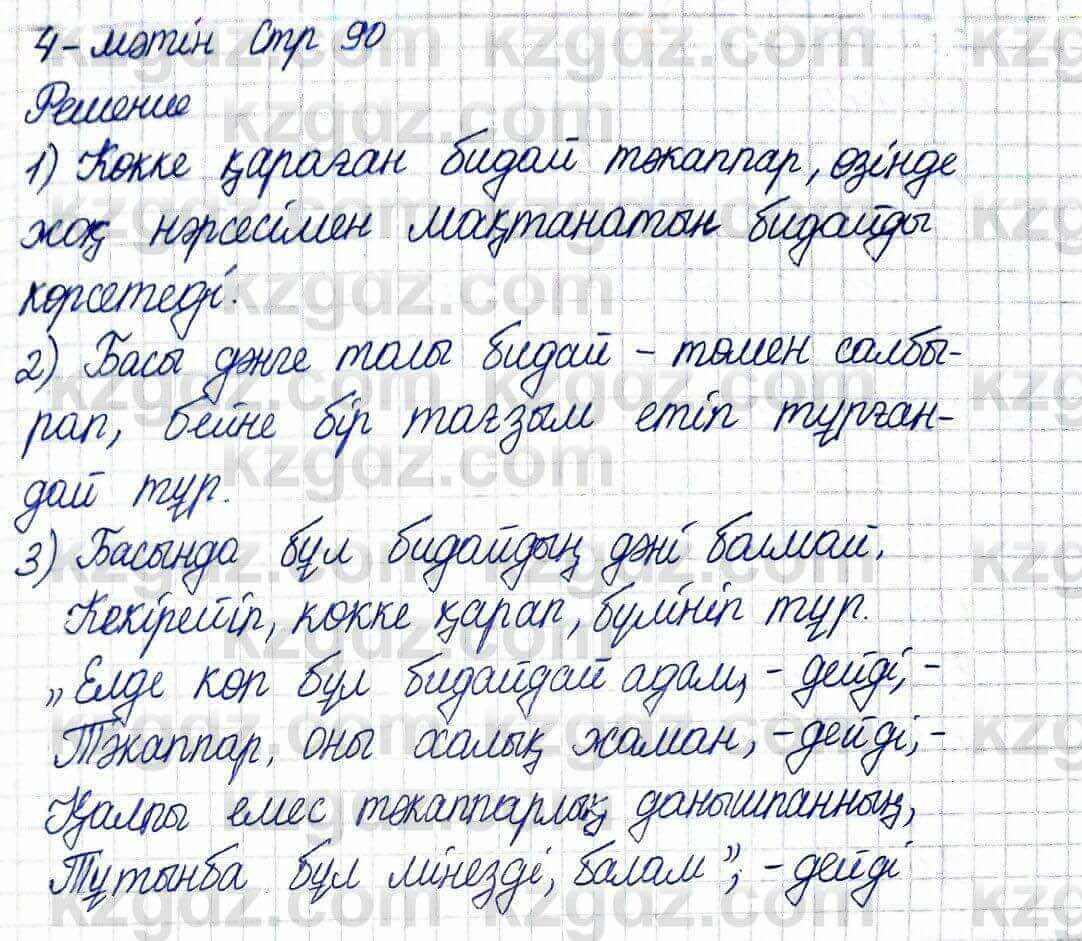 4-мәтін Стр 90
Решение
1) Көкке қараған бидай тәкаппар, өзінде
жоқ нәрсесімен мақтанатын бидайды
көрсетеді.
2) Басы дәнге толы бидай - төмен салбы-
рап, бейне бір тағзым етіп тұрған-
дай тұр.
3) Басында бұл бидайдың дәні болмай.
Кекірейіп, көкке қарап, бүлініп тұр.
„Елде көп бұл бидайдай адам, - дейді, -
Тәкаппар, оны халық жаман, - дейді, -
Қалпы емес тәкаппарлық данышпанның,
Тұтынба бұл мінезді, балам”, - дейді